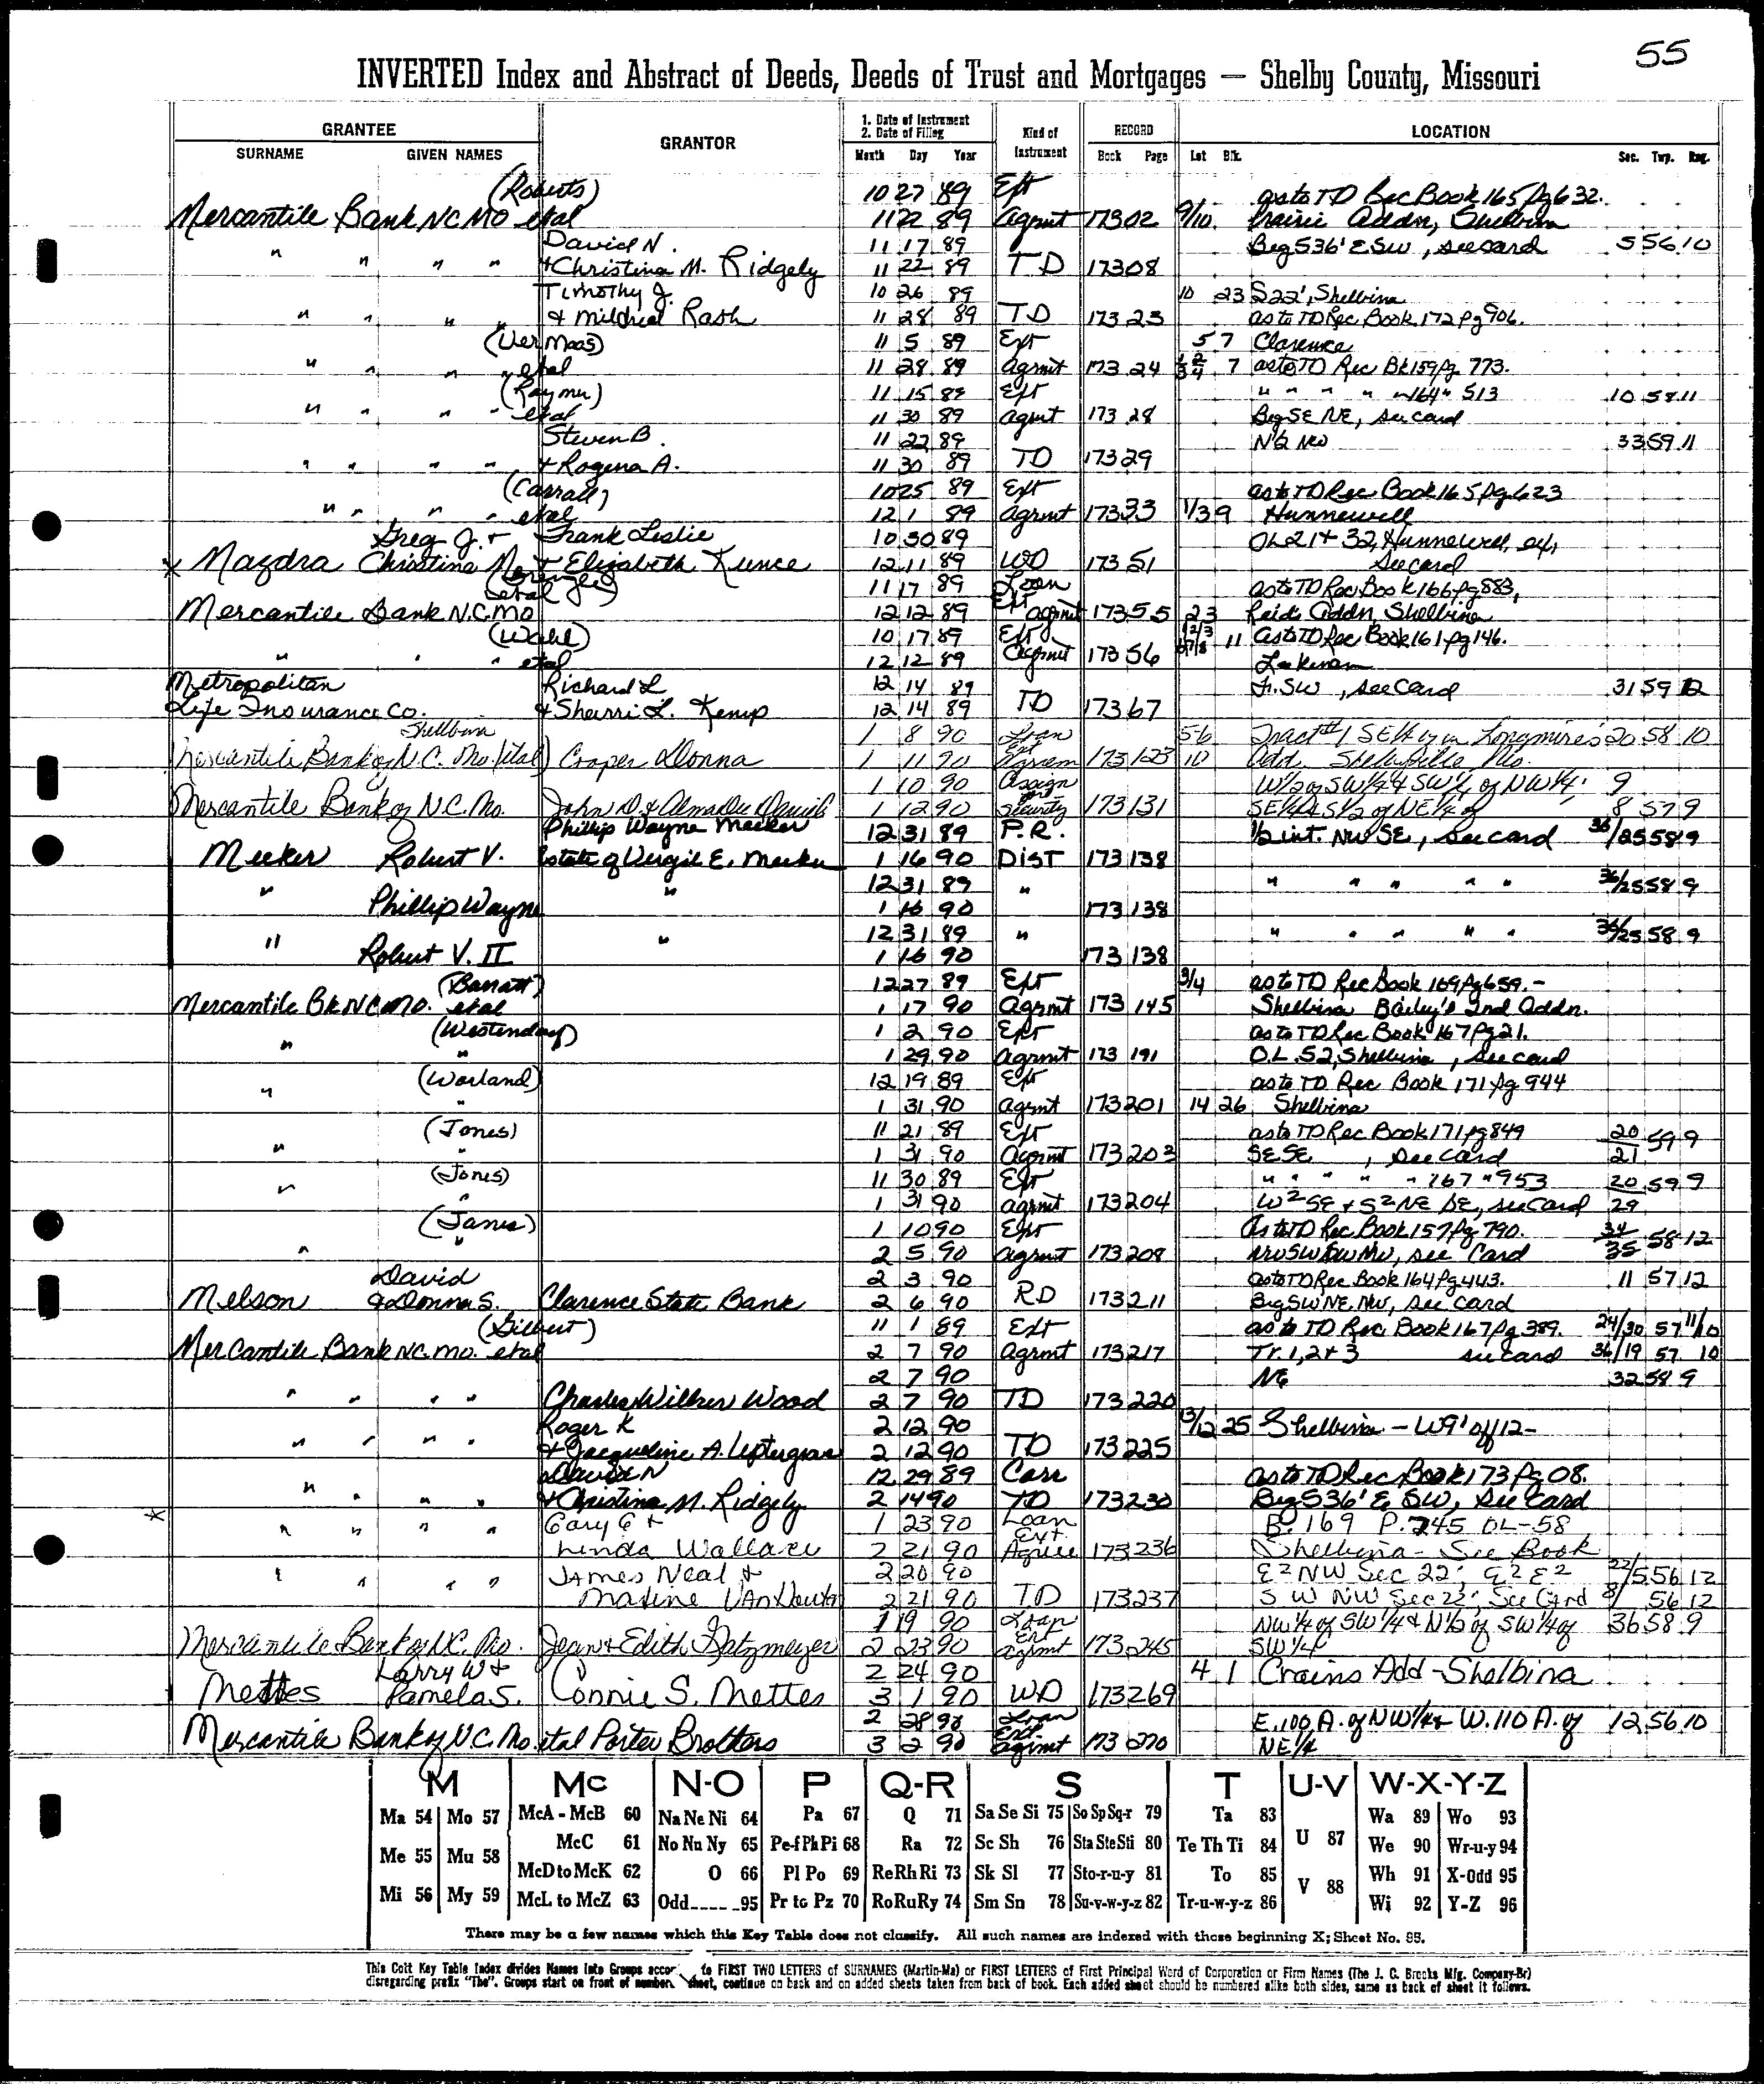 55
INVERTED Index and Abstract of Deeds, Deeds of Trust and Mortgages — Shelby County, Missouri
GRANTEE GRANTOR 1. Date of Instrument 2. Date of Filing Kind of Instrument RECORD LOCATION
SURNAME GIVEN NAMES Month Day Year Book Page Lot Blk. Sec. Twp. Rng.
(Roberts) 10 27 89 Ext as to TD Rec Book 165 Pg 632.
Mercantile Bank NC MO etal 11 22 89 Agrmt 173 02 9/10 Prairie Addn, Shelbina
David N. 11 17 89 Beg 536' E SW, see card 5 56 10
" " " " + Christina M. Ridgely 11 22 89 TD 173 08
Timothy J. 10 26 89 10 23 S22', Shelbina
" " " " & Mildred Rash 11 28 89 TD 173 23 as to TD Rec Book 172 Pg 906.
(Ver Maas) 11 5 89 Ext 5 7 Clarence
" " " " etal 11 28 89 Agrmt 173 24 7 as to TD Rec Bk 159 Pg 773.
(Raymer) 11 15 89 Ext " " " " " 164 " 513 10 58 11
" " " " etal 11 30 89 Agmt 173 28 Beg SE NE, see card
Steven B. 11 22 89 N½ NW 33 59 11
" " " " + Rogena A. 11 30 89 TD 173 29
(Carroll) 10 25 89 Ext as to TD Rec Book 165 Pg 623
" " " " etal 12 1 89 Agrmt 173 33 1/3 9 Hunnewell
Greg J. + Frank Leslie 10 30 89 OL 21 + 32, Hunnewell,
x Mazdra Christina M. + Elizabeth Kunce 12 11 89 WD 173 51 see card
etal 11 17 89 Loan as to TD Rec Book 166 Pg 883,
Mercantile Bank N.C. MO 12 12 89 Ext agrmt 173 55 23 Reids Addn Shelbina
(Wahl) 10 17 89 Ext 11 as to TD Rec Book 161 Pg 146.
" " " etal 12 12 89 Agrmt 173 56 Lakenan
Metropolitan Richard L 12 14 89 Fr. SW, see Card 31 59 12
Life Insurance Co. & Sherri L. Kemp 12 14 89 TD 173 67
Shelbina 1 8 90 Loan 5-6 Tract #1 SE¼ Longmire's 20 58 10
Mercantile Bank of N.C. Mo (etal) Cooper Donna 1 11 90 Ext 173 123 10 Add. Shelbyville Mo.
1 10 90 Assign W½ of SW¼ & SW¼ of NW¼; 9
Mercantile Bank of N.C. Mo. John D. & Alma Dee Daniels 1 12 90 Security 173 131 SE¼ & S½ of NE¼ of 8 57 9
Phillip Wayne Meeker 12 31 89 P.R. ½ int. NW SE, see card 36/25 58 9
Meeker Robert V. Estate of Vergil E. Meeker 1 16 90 DIST 173 138
" " 12 31 89 " " " " " " 36/25 58 9
Phillip Wayne 1 16 90 173 138
" " 12 31 89 " " " " " " 36/25 58 9
Robert V. II 1 16 90 173 138
(Barratt) 12 27 89 Ext 3/4 as to TD Rec Book 169 Pg 659. -
Mercantile Bk NC MO. etal 1 17 90 Agrmt 173 145 Shelbina Bailey's 2nd Addn.
(Westendorf) 1 2 90 Ext as to TD Rec Book 167 Pg 21.
" " 1 29 90 Agrmt 173 191 O.L. 52, Shelbina, see card
(Worland) 12 19 89 Ext as to TD Rec Book 171 Pg 944
" " 1 31 90 Agrmt 173 201 14 26 Shelbina
(Jones) 11 21 89 Ext as to TD Rec Book 171 Pg 849 20 59 9
" " 1 31 90 Agrmt 173 203 SE SE, see card 21
(Jones) 11 30 89 Ext " " " " " 167 " 953 20 59 9
" " 1 31 90 Agrmt 173 204 W² SE + S² NE SE, see card 29
(Janes) 1 10 90 Ext as to TD Rec Book 157 Pg 790. 34 58 12
" " 2 5 90 Agrmt 173 208 NW SW SW NW, see Card 35
David 2 3 90 as to TD Rec Book 164 Pg 443. 11 57 12
Melson & Donna S. Clarence State Bank 2 6 90 RD 173 211 Beg SW NE NW, see card
(Gilbert) 11 1 89 Ext as to TD Rec Book 167 Pg 389. 24/30 57 11/10
Mercantile Bank NC. MO. etal 2 7 90 Agrmt 173 217 Tr. 1, 2 + 3 see card 36/19 57 10
2 7 90 NE 32 58 9
" " " " Charles Wilber Wood 2 7 90 TD 173 220
Roger K 2 12 90 13/12 25 Shelbina - W9' off 12 -
" " " " + Jacqueline A. 2 12 90 TD 173 225
David N 12 29 89 Corr as to TD Rec Book 173 Pg 08.
" " " " + Christina M. Ridgely 2 14 90 TD 173 230 Beg 536' E SW, see card
* " " " " Gary E + 1 23 90 Loan B. 169 P. 745 OL-58
Linda Wallace 2 21 90 Ext. Agree 173 236 Shelbina - See Book
" " " " James Neal & 2 20 90 E² NW Sec 22; E² E² 22/5 56 12
Maxine VanHouten 2 21 90 TD 173 237 SW NW Sec 22; See Card 8/ 56 12
1 19 90 Loan NW¼ of SW¼ & N½ of SW¼ of 36 58 9
Mercantile Bank of N.C. Mo. Jean & Edith Gatzmeyer 2 23 90 Ext agrmt 173 245 SW¼
Larry W & 2 24 90 4 1 Crains Add - Shelbina
Mettes Pamela S. Connie S. Mettes 3 1 90 WD 173 269
2 28 90 Loan E. 100 A. of NW¼ & W. 110 A. of 12 56 10
Mercantile Bank of N.C. Mo. etal Porter Brothers 3 2 90 Ext. agrmt 173 270 NE¼
M Mc N-O P Q-R S T U-V W-X-Y-Z
Ma 54 Mo 57 McA - McB 60 Na Ne Ni 64 Pa 67 Q 71 Sa Se Si 75 So Sp Sq-r 79 Ta 83 U 87 Wa 89 Wo 93
Me 55 Mu 58 McC 61 No Nu Ny 65 Pe-f Ph Pi 68 Ra 72 Sc Sh 76 Sta Ste Sti 80 Te Th Ti 84 We 90 Wr-u-y 94
McD to McK 62 O 66 Pl Po 69 Re Rh Ri 73 Sk Sl 77 Sto-r-u-y 81 To 85 V 88 Wh 91 X-Odd 95
Mi 56 My 59 McL to McZ 63 Odd-----95 Pr to Pz 70 Ro Ru Ry 74 Sm Sn 78 Su-v-w-y-z 82 Tr-u-w-y-z 86 Wi 92 Y-Z 96
There may be a few names which this Key Table does not classify. All such names are indexed with those beginning X; Sheet No. 95.
This Cott Key Table Index divides Names Into Groups accor to FIRST TWO LETTERS of SURNAMES (Martin-Ma) or FIRST LETTERS of First Principal Word of Corporation or Firm Names (The J. C. Brooks Mfg. Company-Br)
disregarding prefix "The". Groups start on front of number sheet, continue on back and on added sheets taken from back of book. Each added sheet should be numbered alike both sides, same as back of sheet it follows.